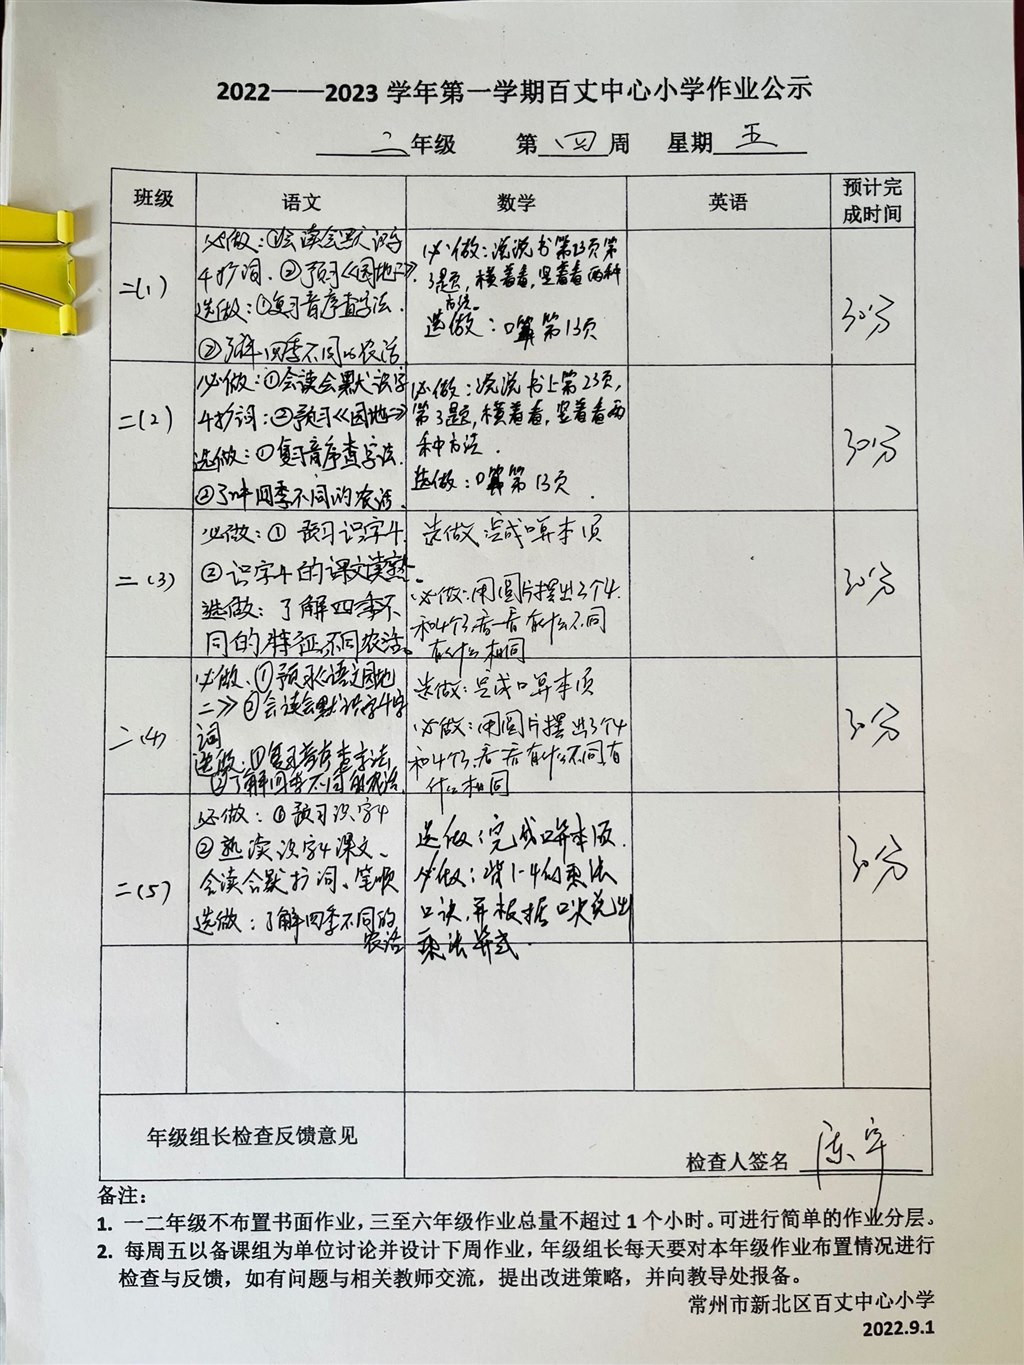 2022——2023 学年第一学期百丈中心小学作业公示
二年级 第四周 星期五
班级 语文 数学 英语 预计完成时间
二(1)
必做：①会读会默识字
4扩词、②预习《园地二》
选做：①复习音序查字法.
②了解四季不同的农活
必做：说说书第23页第
3题，横着看，竖着看两种
方法。
选做：口算第13页
30分
二(2)
必做：①会读会默识字
4扩词：②预习《园地二》
选做：①复习音序查字法.
②了解四季不同的农活.
必做：说说书上第23页,
第3题,横着看,竖着看两
种方法.
选做：口算第13页.
30分
二(3)
必做：① 预习识字4
②识字4的课文读熟.
选做：了解四季不
同的特征,不同农活。
选做 完成口算本1页
必做:用圆片摆出3个4.
和4个3.看一看有什么不同
有什么相同
30分
二(4)
必做、①预习《语文园地
二》②会读会默识字4字
词
选做:①复习音序查字法
②了解四季不同的农活.
选做：完成口算本1页
必做：用圆片摆出3个4
和4个3.看一看有什么不同,有
什么相同
30分
二(5)
必做：①预习识字4
②熟读识字4课文、
会读会默扩词、笔顺
选做：了解四季不同的
农活
选做：完成口算本1页.
必做：背1-4的乘法
口诀,并根据口诀说出
乘法算式.
30分
年级组长检查反馈意见
检查人签名
备注：
1. 一二年级不布置书面作业，三至六年级作业总量不超过 1 个小时。可进行简单的作业分层。
2. 每周五以备课组为单位讨论并设计下周作业，年级组长每天要对本年级作业布置情况进行
检查与反馈，如有问题与相关教师交流，提出改进策略，并向教导处报备。
常州市新北区百丈中心小学
2022.9.1